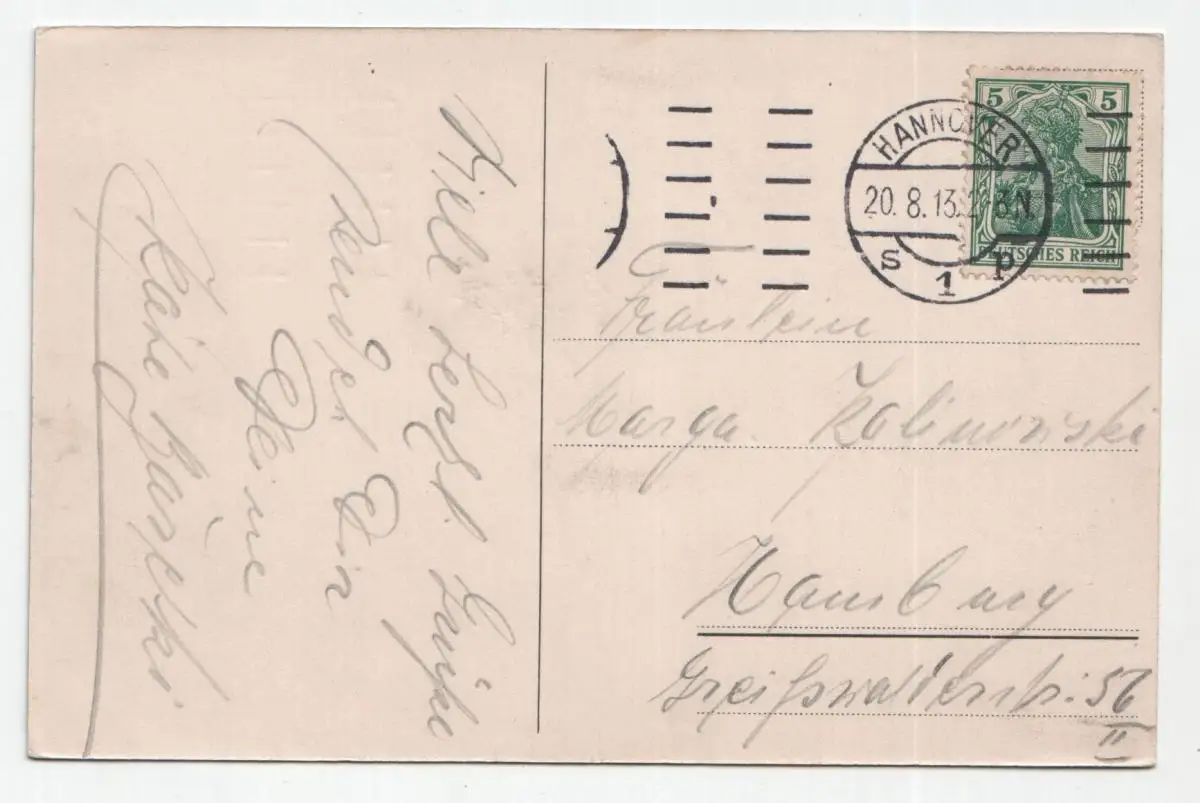 Viele herzl. Grüße
sendet Dir
Deine
HANNOVER 1
20. 8. 13. 2-3 N.
S 1 P
5 5
DEUTSCHES REICH
Fräulein
Marga Kalinowski
Hamburg
Greifswalderstr. 56
II